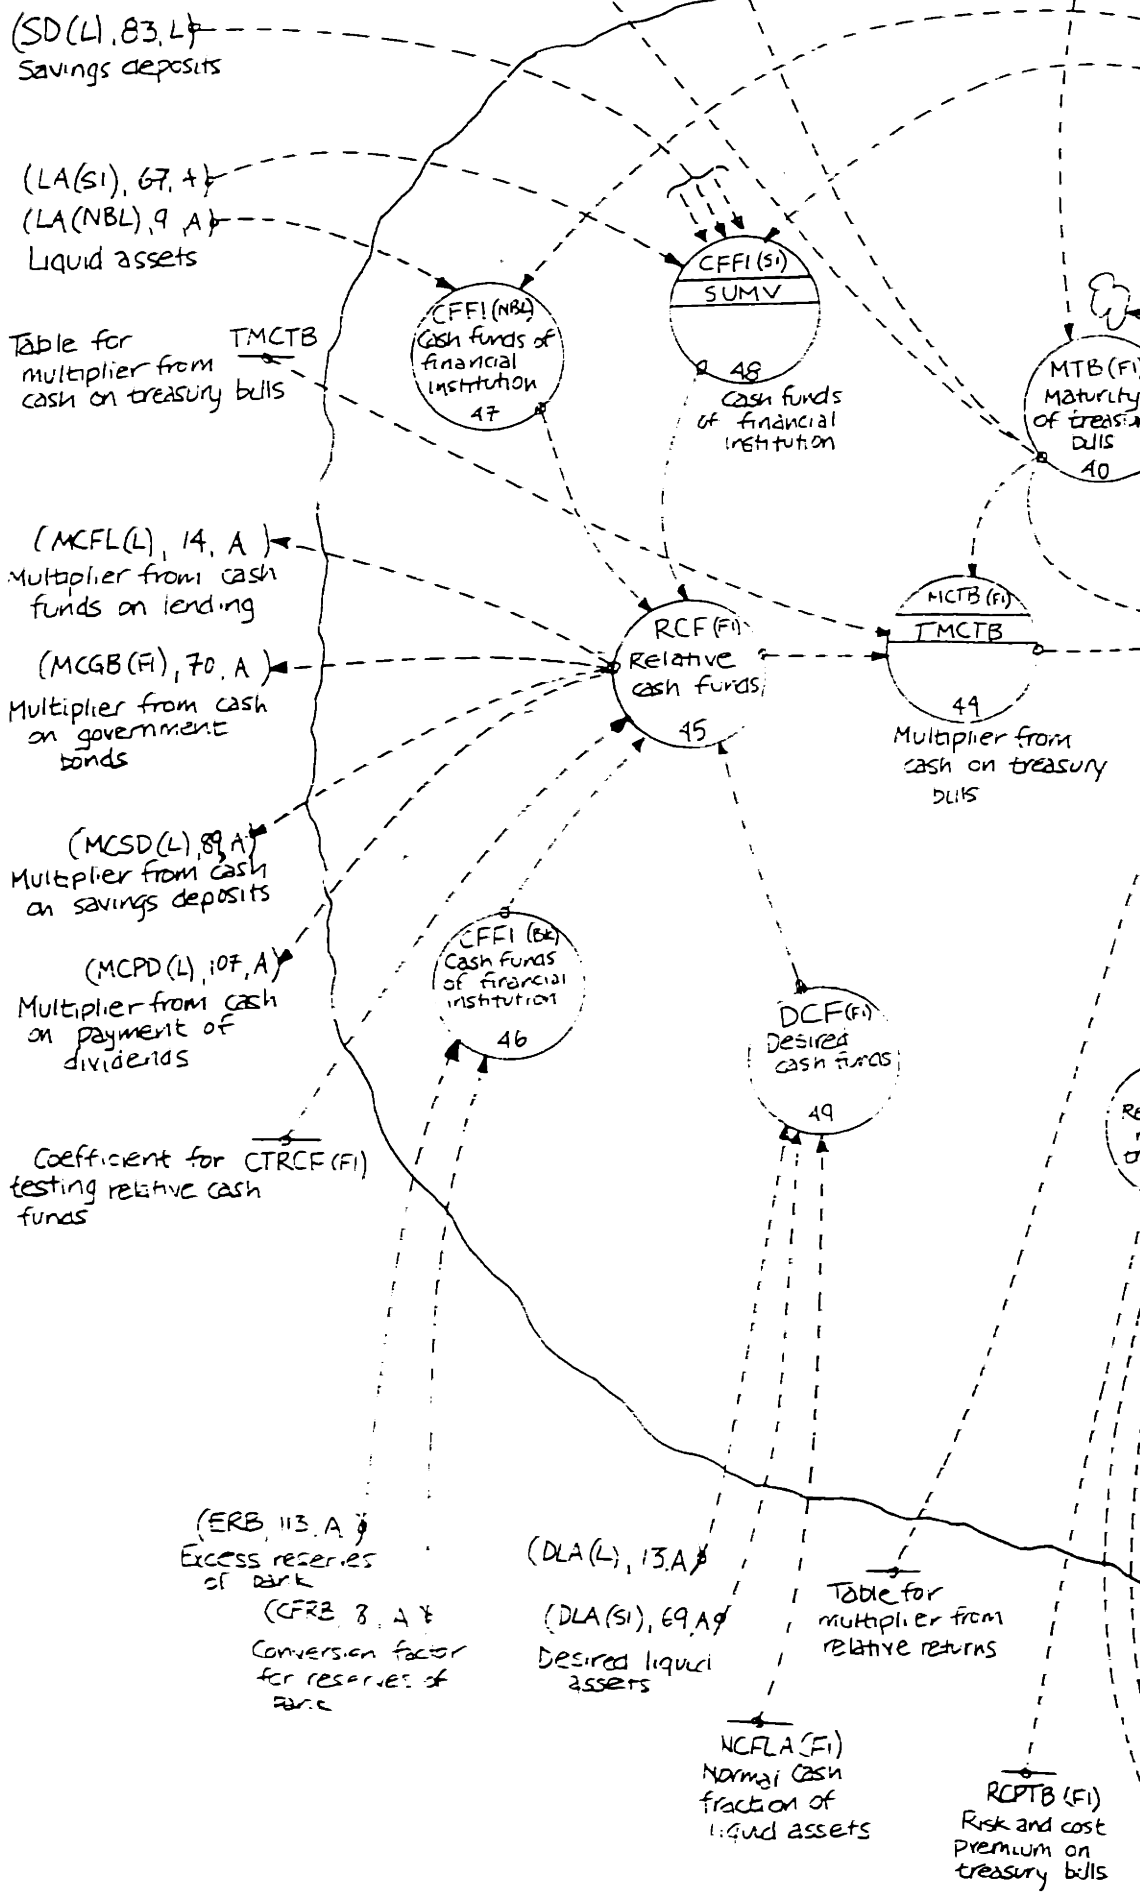 (SD(L), 83, L)
Savings deposits
(LA(SI), 67, A)
(LA(NBL), 9 A)
Liquid assets
CFFI (SI)
SUMV
48
Cash funds
of financial
institution
CFFI (NBL)
Cash funds of
financial
institution
47
Table for
multiplier from
cash on treasury bills
TMCTB
MTB (FI)
Maturity
of
bills
40
(MCFL(L), 14, A)
Multiplier from cash
funds on lending
MCTB (FI)
TMCTB
44
Multiplier from
cash on treasury
bills
RCF (FI)
Relative
cash funds
45
(MCGB(FI), 70, A)
Multiplier from cash
on government
bonds
(MCSD(L), 89, A)
Multiplier from cash
on savings deposits
(MCPD(L), 107, A)
Multiplier from cash
on payment of
dividends
CFFI (BK)
Cash funds
of financial
institution
46
DCF (FI)
Desired
cash funds
49
Coefficient for
testing relative cash
funds
CTRCF (FI)
(ERB, 113, A)
Excess reserves
of bank
(CFRB, 8, A)
Conversion factor
for reserves of
bank
(DLA(L), 13, A)
(DLA(SI), 69, A)
Desired liquid
assets
Table for
multiplier from
relative returns
NCFLA (FI)
Normal cash
fraction of
liquid assets
RCPTB (FI)
Risk and cost
premium on
treasury bills